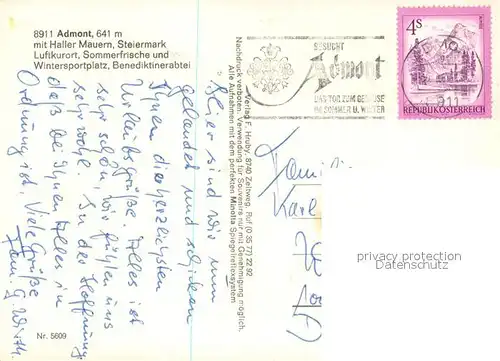 8911 Admont, 641 m
mit Haller Mauern, Steiermark
Luftkurort, Sommerfrische und
Wintersportplatz, Benediktinerabtei
Hier sind wir nun
gelandet und schicken
Ihnen die herzlichsten
Urlaubsgrüße. Alles ist
sehr schön, wir fühlen uns
sehr wohl. In der Hoffnung
daß bei Ihnen Allen in
Ordnung ist, Viele Grüße
Fam. G. Wirth
Nr. 5609
Verlag F. Hruby, 8740 Zeltweg, Ruf (0 35 77) 22 92
Nachdruck verboten. Verwendung für Souvenirs nur mit Genehmigung möglich.
Alle Aufnahmen mit dem perfekten Minolta Spiegelreflexsystem
BESUCHT
Admont
DAS TOR ZUM GESÄUSE
IM SOMMER U. WINTER
4S
REPUBLIK ÖSTERREICH
Fam.
Karl
privacy protection
Datenschutz